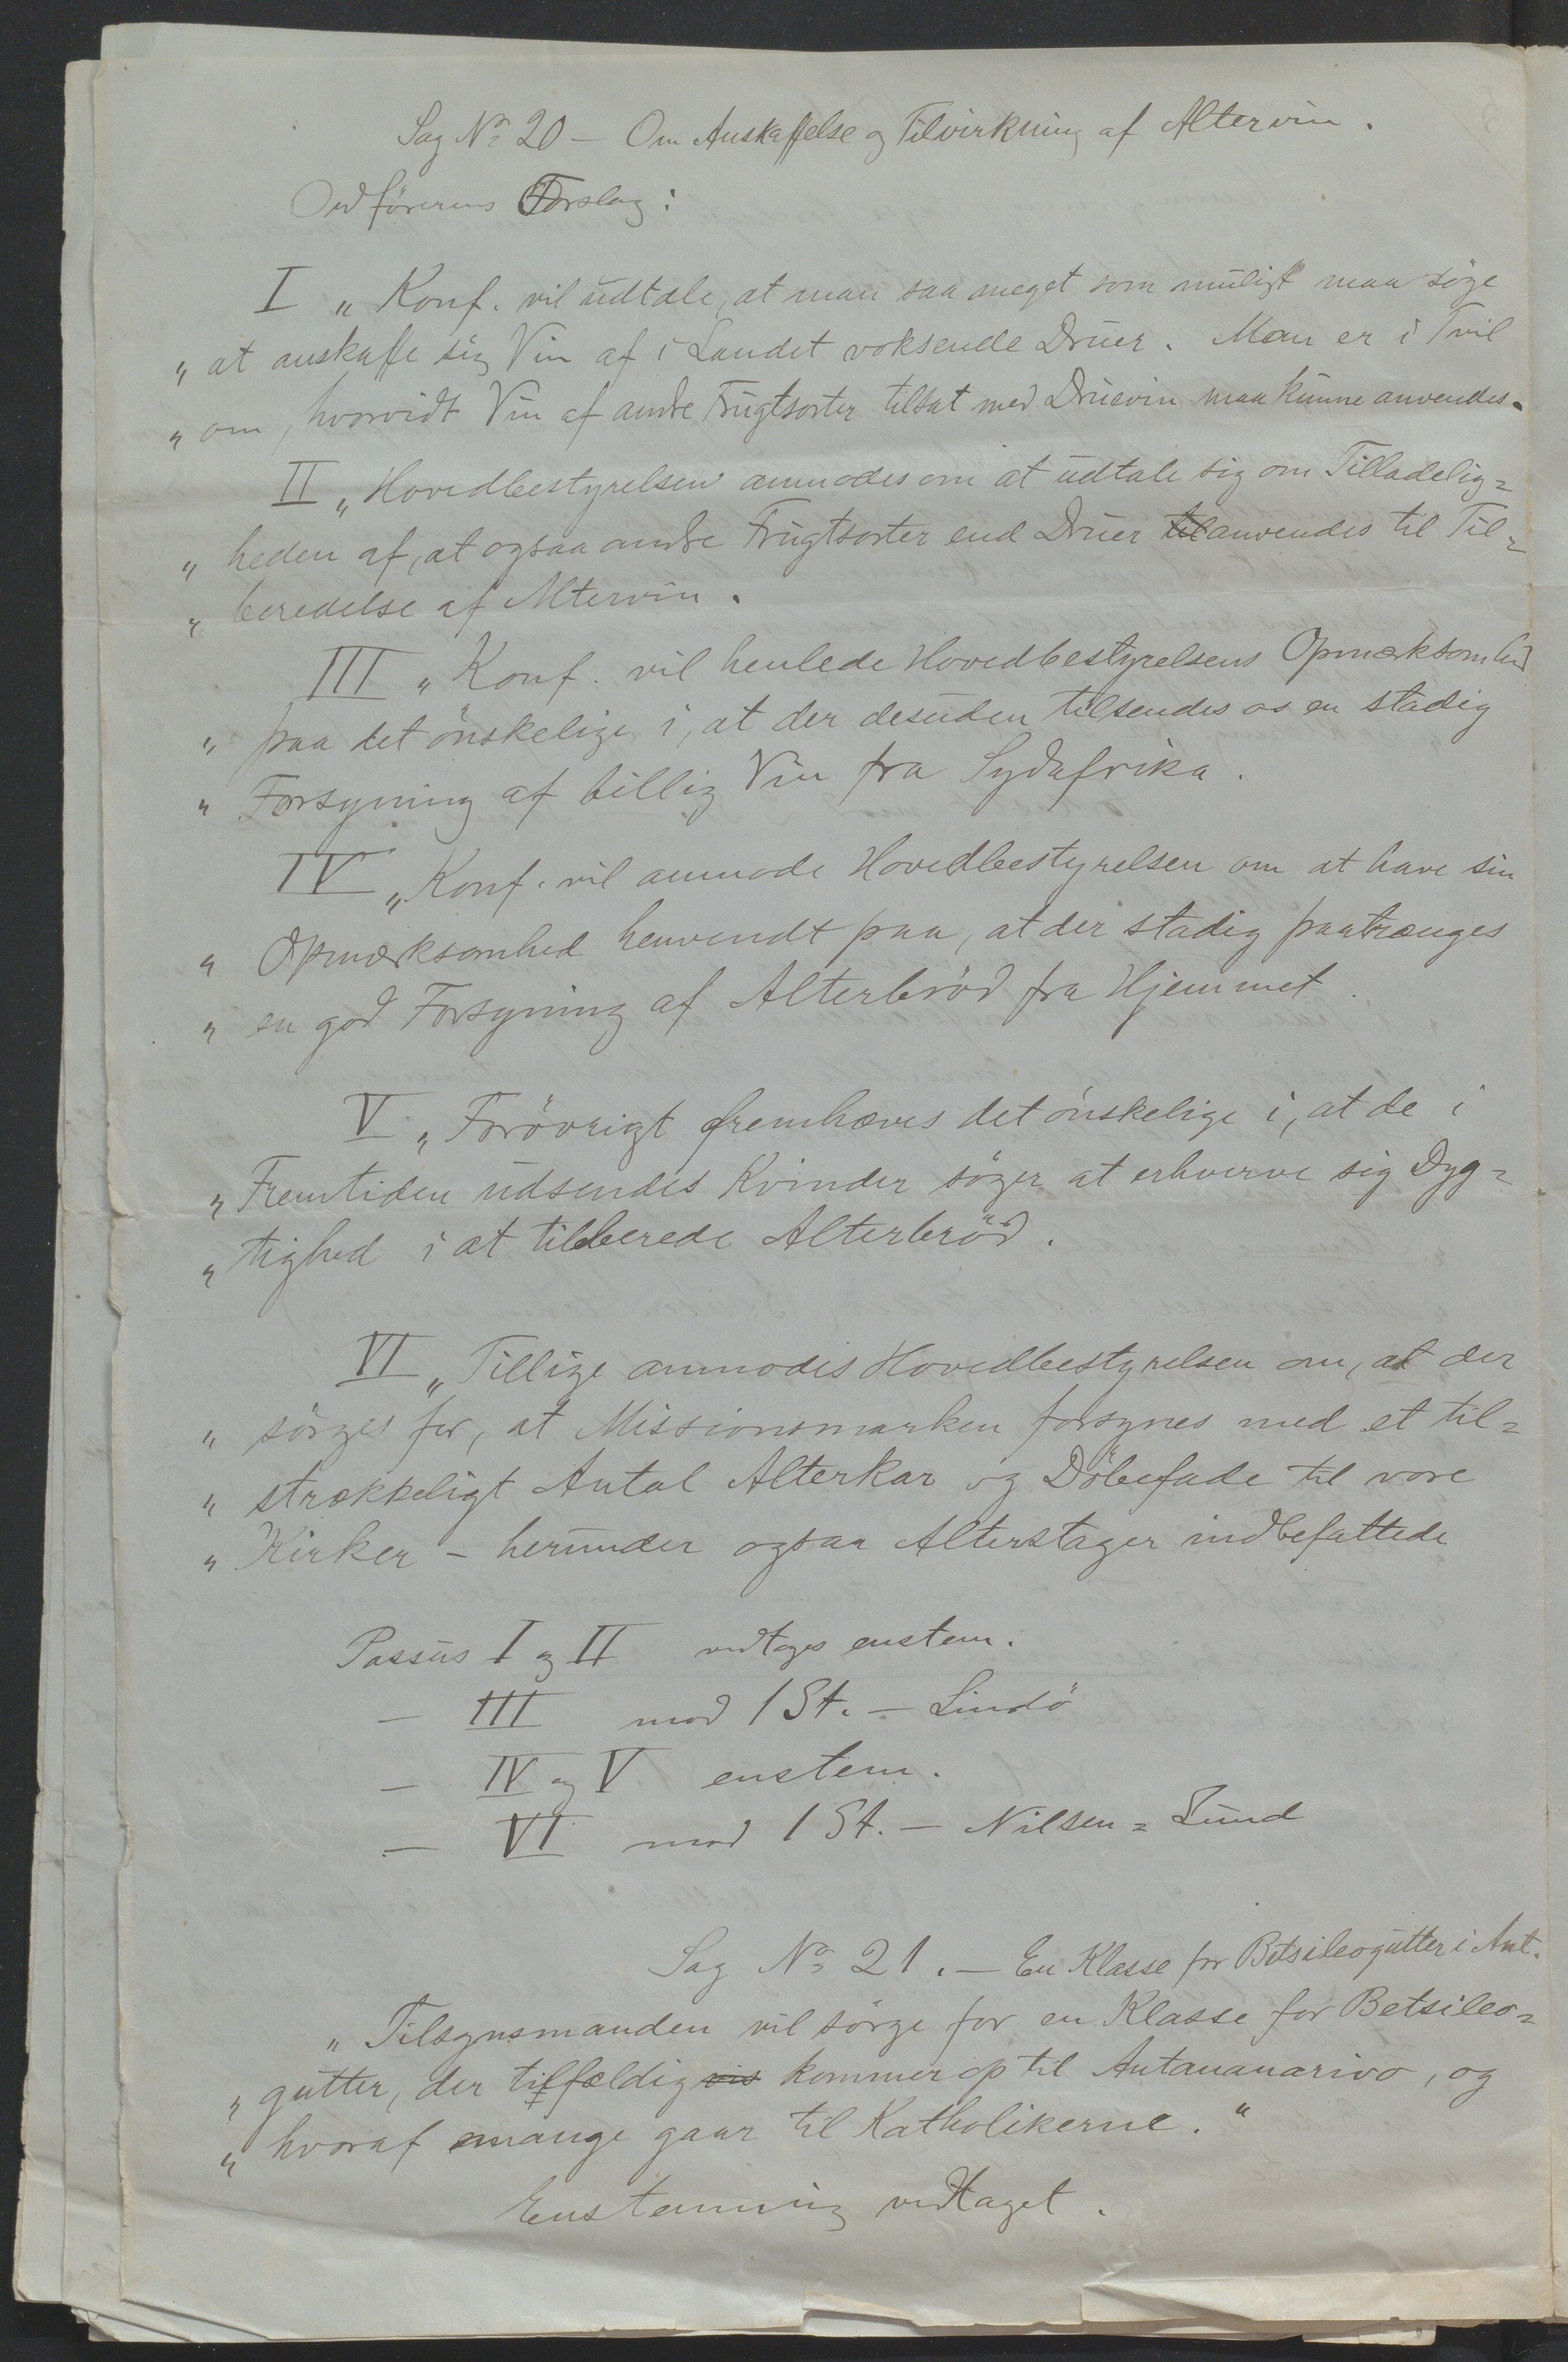 Sag No 20 - Om Anskaffelse og Tilvirkning af Altervin.
Ordförerens Forslag:
I „ Konf. vil udtale, at man saa meget som muligt maa söge
„ at anskaffe sig Vin af i Landet voksende Druer. Man er i Tvil
„ om, hvorvidt Vin af andre Frugtsorter tilsat med Druevin maa kunne anvendes.
II „ Hovedbestyrelsen anmodes om at udtale sig om Tilladelig=
„ heden af, at ogsaa andre Frugtsorter end Druer til anvendes til Til=
„ beredelse af Altervin.
III „ Konf. vil henlede Hovedbestyrelsens Opmærksomhed
„ paa det önskelige i, at der desuden tilsendes os en stadig
„ Forsyning af billig Vin fra Sydafrika.
IV „ Konf. vil anmode Hovedbestyrelsen om at have sin
„ Opmærksomhed henvendt paa, at der stadig paatrænges
„ en god Forsyning af Alterbröd fra Hjemmet.
V „ Forövrigt fremhæves det önskelige i, at de i
„ Fremtiden udsendes Kvinder söger at erhverve sig Dyg=
„ tighed i at tilberede Alterbröd.
VI „ Tillige anmodes Hovedbestyrelsen om, at der
„ sörges for, at Missionsmarken forsynes med et til=
„ strækkeligt Antal Alterkar og Döbefade til vore
„ Kirker - herunder ogsaa Alterstager indbefattede
Passus I og II vedtages enstem.
— III mod 1 St. - Lindö
— IV og V enstem.
— VI mod 1 St. - Nilsen = Lund
Sag No 21. - En Klasse for Betsileogutter i Ant.
„ Tilsynsmanden vil sörge for en Klasse for Betsileo=
„ gutter, der tilfældig vis kommer op til Antananarivo, og
„ hvoraf mange gaar til Katholikerne."
Enstemmig vedtaget.